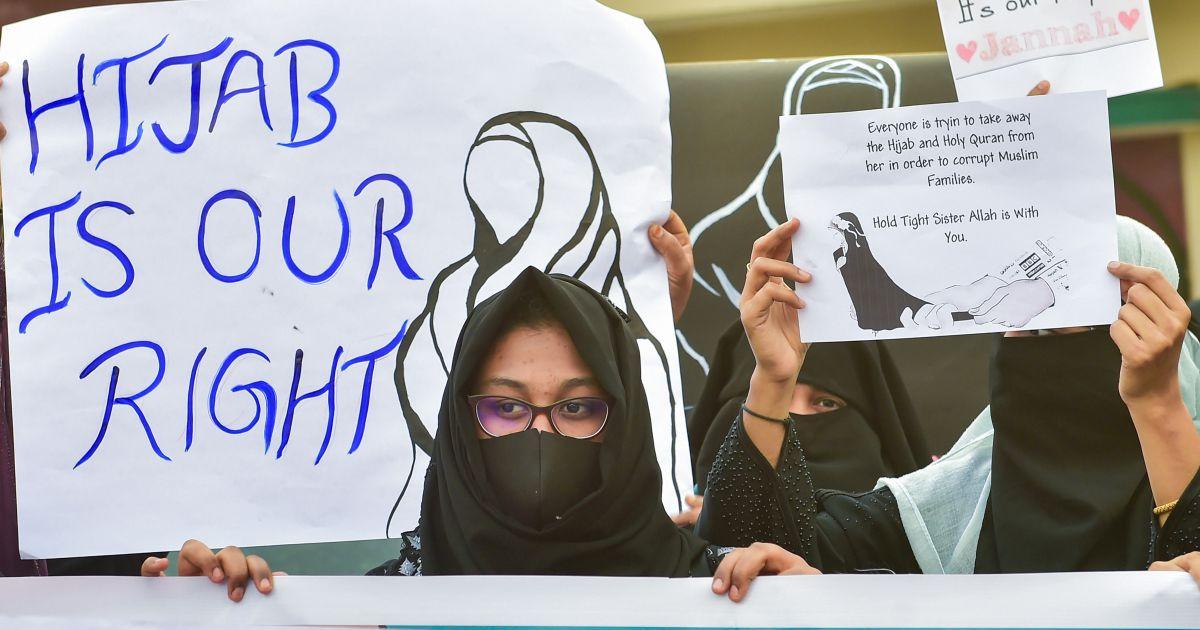 HIJAB
IS OUR
RIGHT
It's our
Jannah
Everyone is tryin to take away
the Hijab and Holy Quran from
her in order to corrupt Muslim
Families.
Hold Tight Sister Allah is With
You.